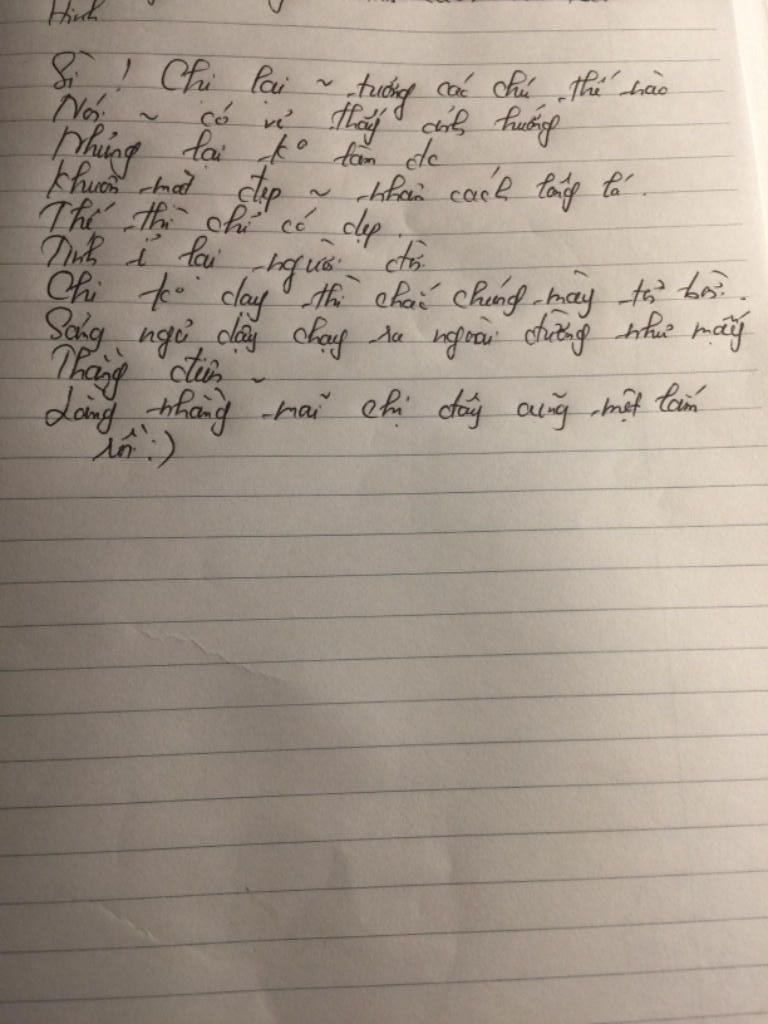 Hình
Sì! Chi lại ~ tướng các chú thế nào
Nói ~ có vẻ thấy ảnh hưởng
Nhưng lại k° làm dc
Khuôn mặt đẹp ~ nhân cách lồng lá.
Thế thì chỉ có đẹp.
Tính ỉ lại người đó
Chị k° dạy thì chắc chúng mày từ bỏ.
Sáng ngủ dậy chạy ra ngoài đường như mấy
Thằng điên ~
Lằng nhằng mãi chị đây cũng mệt lắm
rồi :)